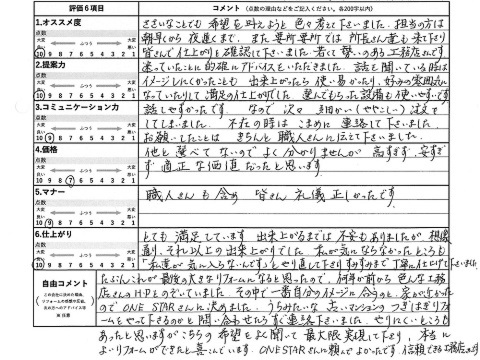 評価6項目
コメント(点数の理由などをご記入ください。各200字以内)
1.オススメ度
点数
大変良い ふつう 大変悪い
10 9 8 7 6 5 4 3 2 1
ささいなことでも 希望を叶えようと 色々考えて下さいました。担当の方は
朝早から 夜遅まで、また要所要所では 所長さん達も来て下さり
皆さんで仕上がりを確認して下さいました。若くて 勢いのある 工務店さんです
2.提案力
点数
大変良い ふつう 大変悪い
10 9 8 7 6 5 4 3 2 1
迷っていたことに的確にアドバイスをいただきました。話を聞いている時は
イメージしにくかったことも 出来上がったら 使い易かったり、好みの雰囲気に
なっていたりして満足の仕上がりでした。選んでもらった設備も使いやすいです
3.コミュニケーション力
点数
大変良い ふつう 大変悪い
10 9 8 7 6 5 4 3 2 1
話しやすかったです。 なので 次々 細かい(ややこしい)注文を
してしまいました。 不在の時は こまめに 連絡して下さいました。
お願いしたことは きちんと 職人さんに伝えて下さいました。
4.価格
点数
大変良い ふつう 大変悪い
10 9 8 7 6 5 4 3 2 1
他と比べてないのでよく分かりませんが 高すぎず、安すぎ
ず 適正な価値だったと思います。
5.マナー
点数
大変良い ふつう 大変悪い
10 9 8 7 6 5 4 3 2 1
職人さんも 含め 皆さん 礼儀正しかったです。
6.仕上がり
点数
大変良い ふつう 大変悪い
10 9 8 7 6 5 4 3 2 1
とても 満足しています 出来上がるまでは 不安もありましたが 想像
通り、それ以上の出来上がりでした。私が気にならなかったところも
「私達が気に入らないんです」とやり直して下さりすみずみまで丁寧に仕上げて下さいました
自由コメント
たぶんこれが最後の大きなリフォームになると思ったので、何年か前から色んな工務
店さんのHPをのぞいていました。その中で一番自分のイメージに合うのと、家が近かった
のでONE STARさんに決めました。うちみたいな 古いマンションのつぎはぎリフォ
ームをやって下さるのかと問い合わせたらすぐ連絡下さいました。やりにくいところも
あったと思いますがこちらの希望をよく聞いて最大限実現して下り、本当に
よいリフォームができたと喜んでいます。ONE STARさんに頼んでよかったです。信頼できる工務店さんです